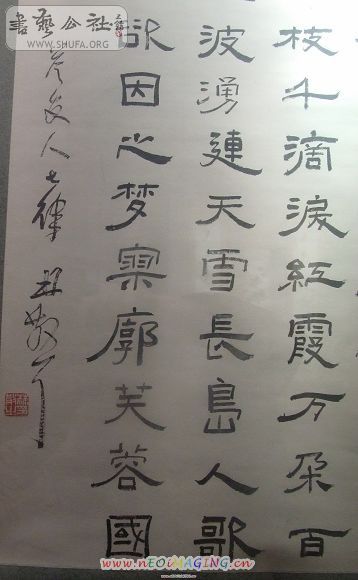 書藝公社
www.SHUFA.ORG
枝千滴淚紅霞万朵百
波湧連天雪長島人歌
欲因之梦寥廓芙蓉國
答友人七律
www.nEOiMAGING.cn